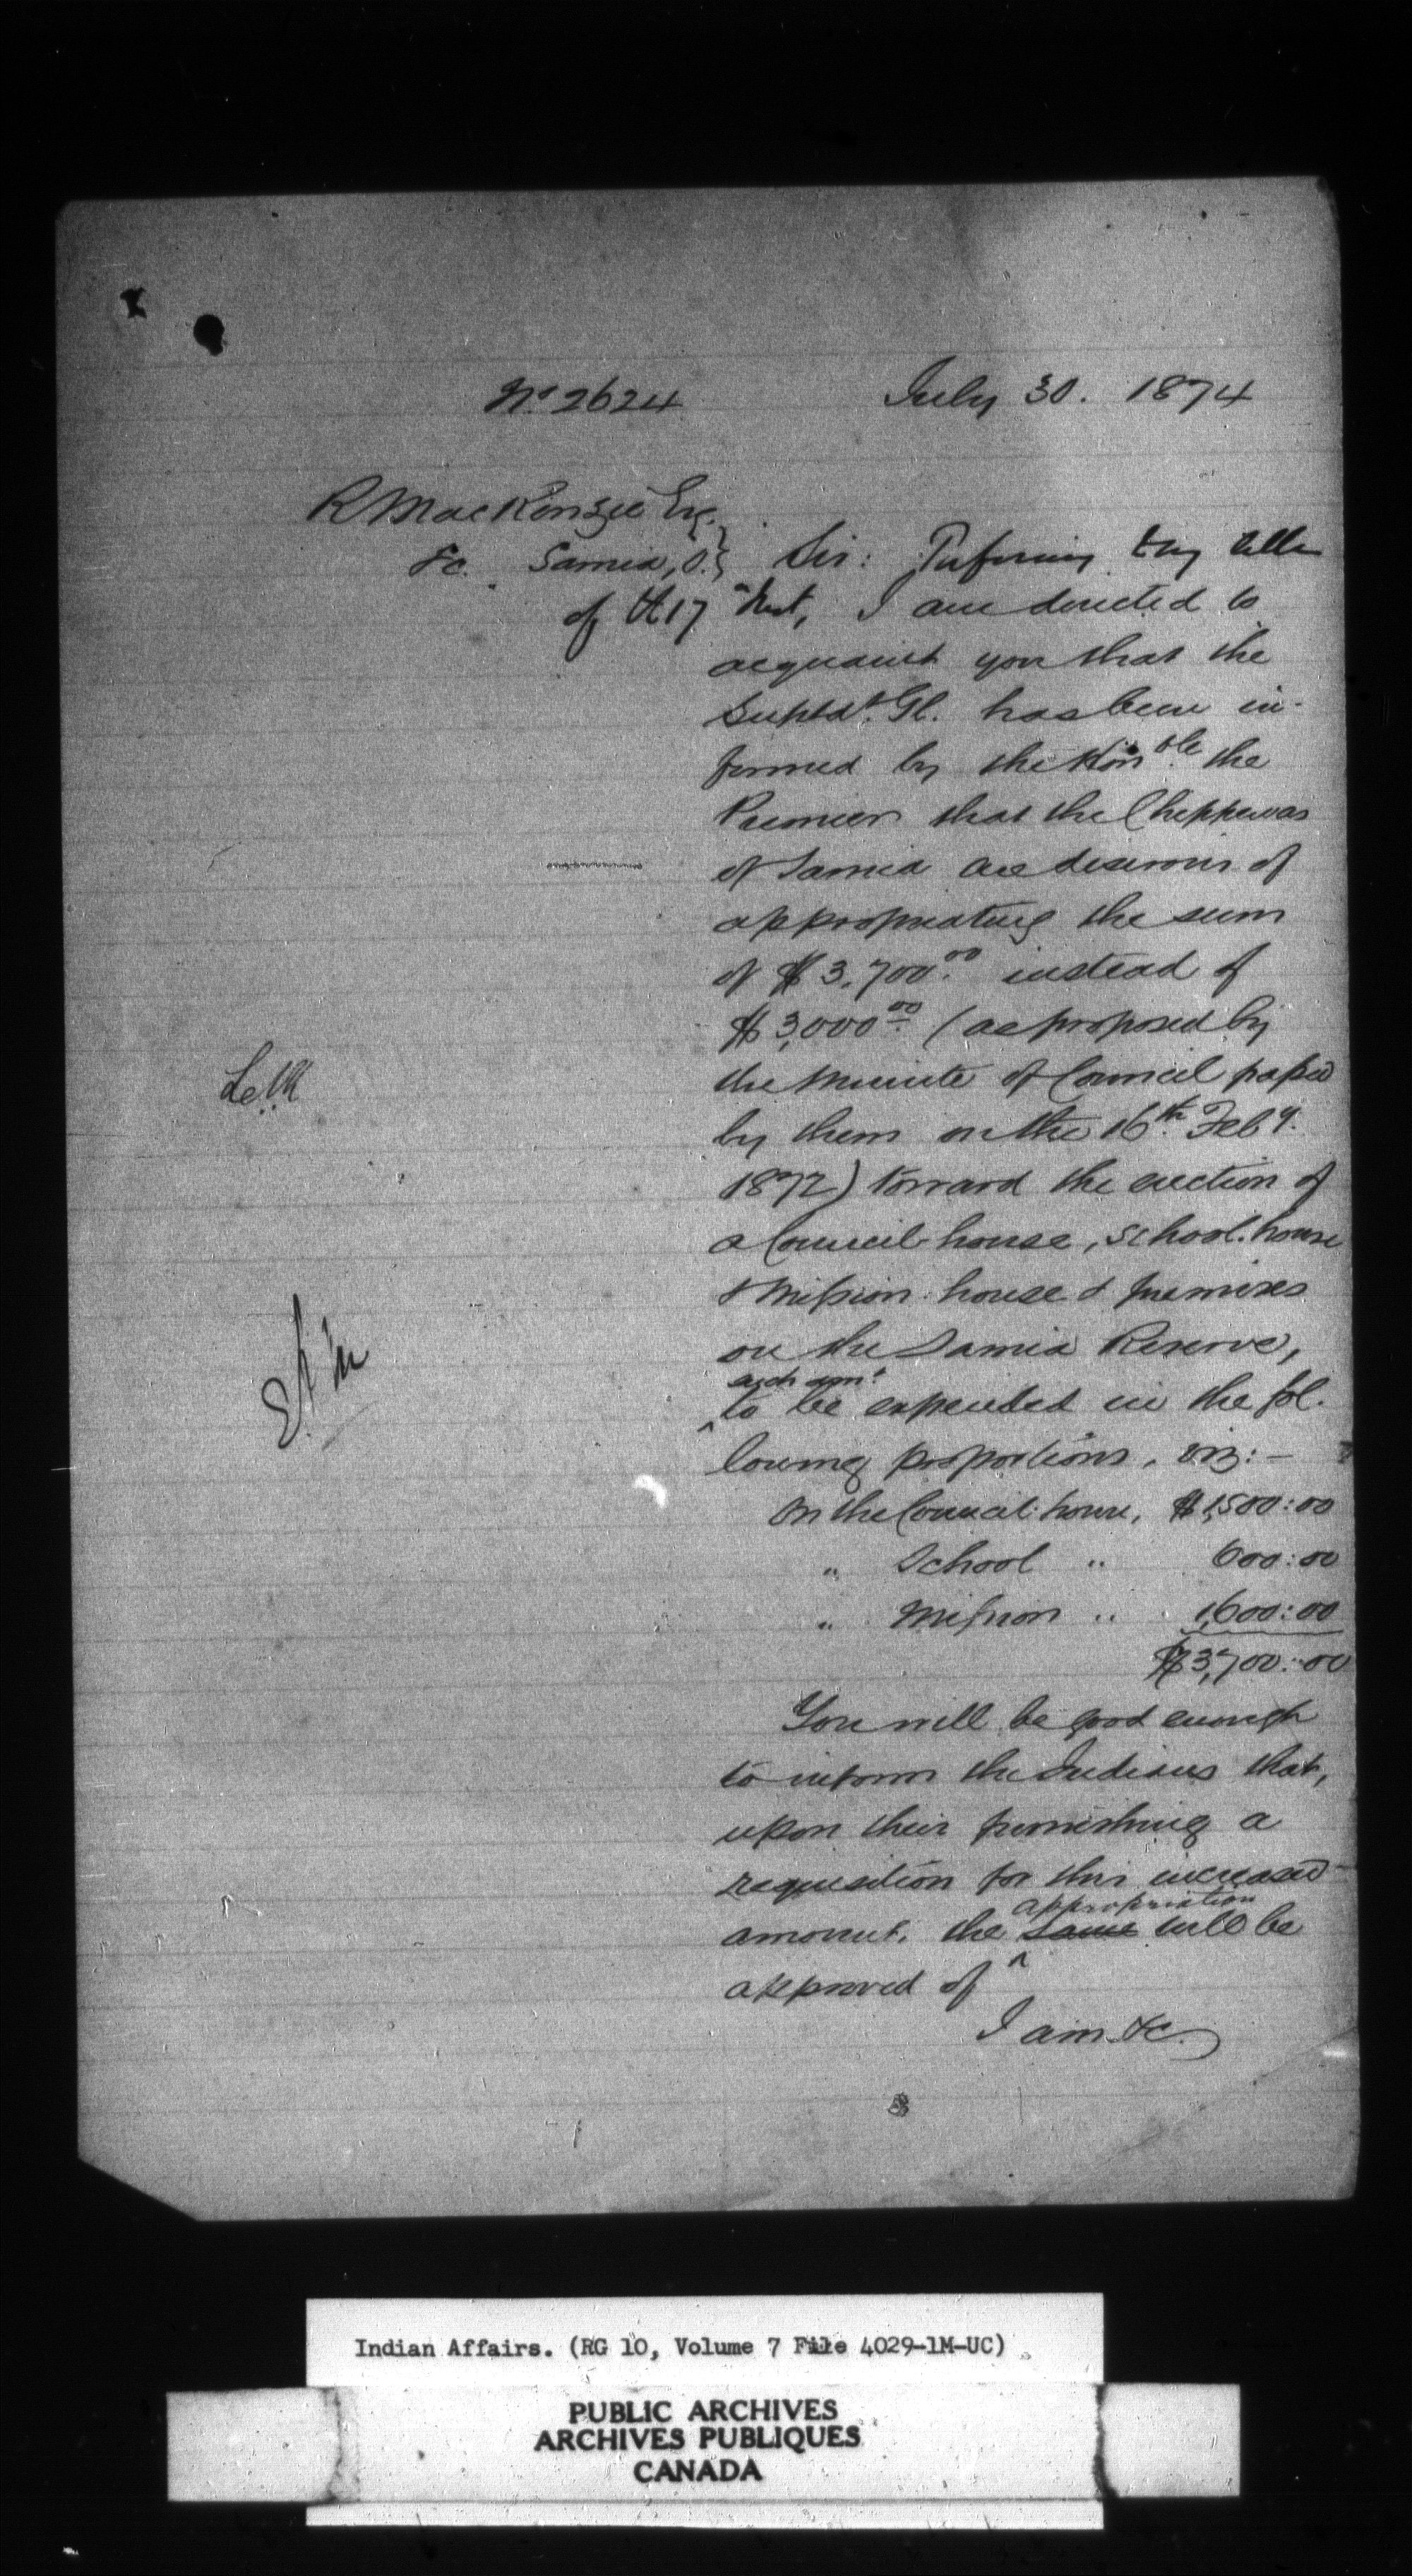 No 2624 July 30. 1874
R MacKenzie Esq.
&c. Sarnia, O. Sir: Referring to my letter
of the 17th Inst, I am directed to
acquaint you that the
Suptdt. Gl. has been in-
formed by the Honble. the
Premier that the Chippewas
of Sarnia are desirous of
appropriating the sum
of $3,700.00 instead of
$3,000.00 (as proposed by
the Minute of Council passed
by them on the 16th. Feby.
1872) toward the erection of
a Council house, School-house
& Mission-house & premises
on the Sarnia Reserve,
such amt.
to be expended in the fol-
lowing proportions, viz:-
On the Council-house, $1,500:00
" School " 600:00
" Mission " 1,600:00
$3,700:00
You will be good enough
to inform the Indians that,
upon their furnishing a
requisition for this increased
appropriation
amount, the same will be
approved of
I am &c.
Indian Affairs. (RG 10, Volume 7 File 4029-1M-UC)
PUBLIC ARCHIVES
ARCHIVES PUBLIQUES
CANADA